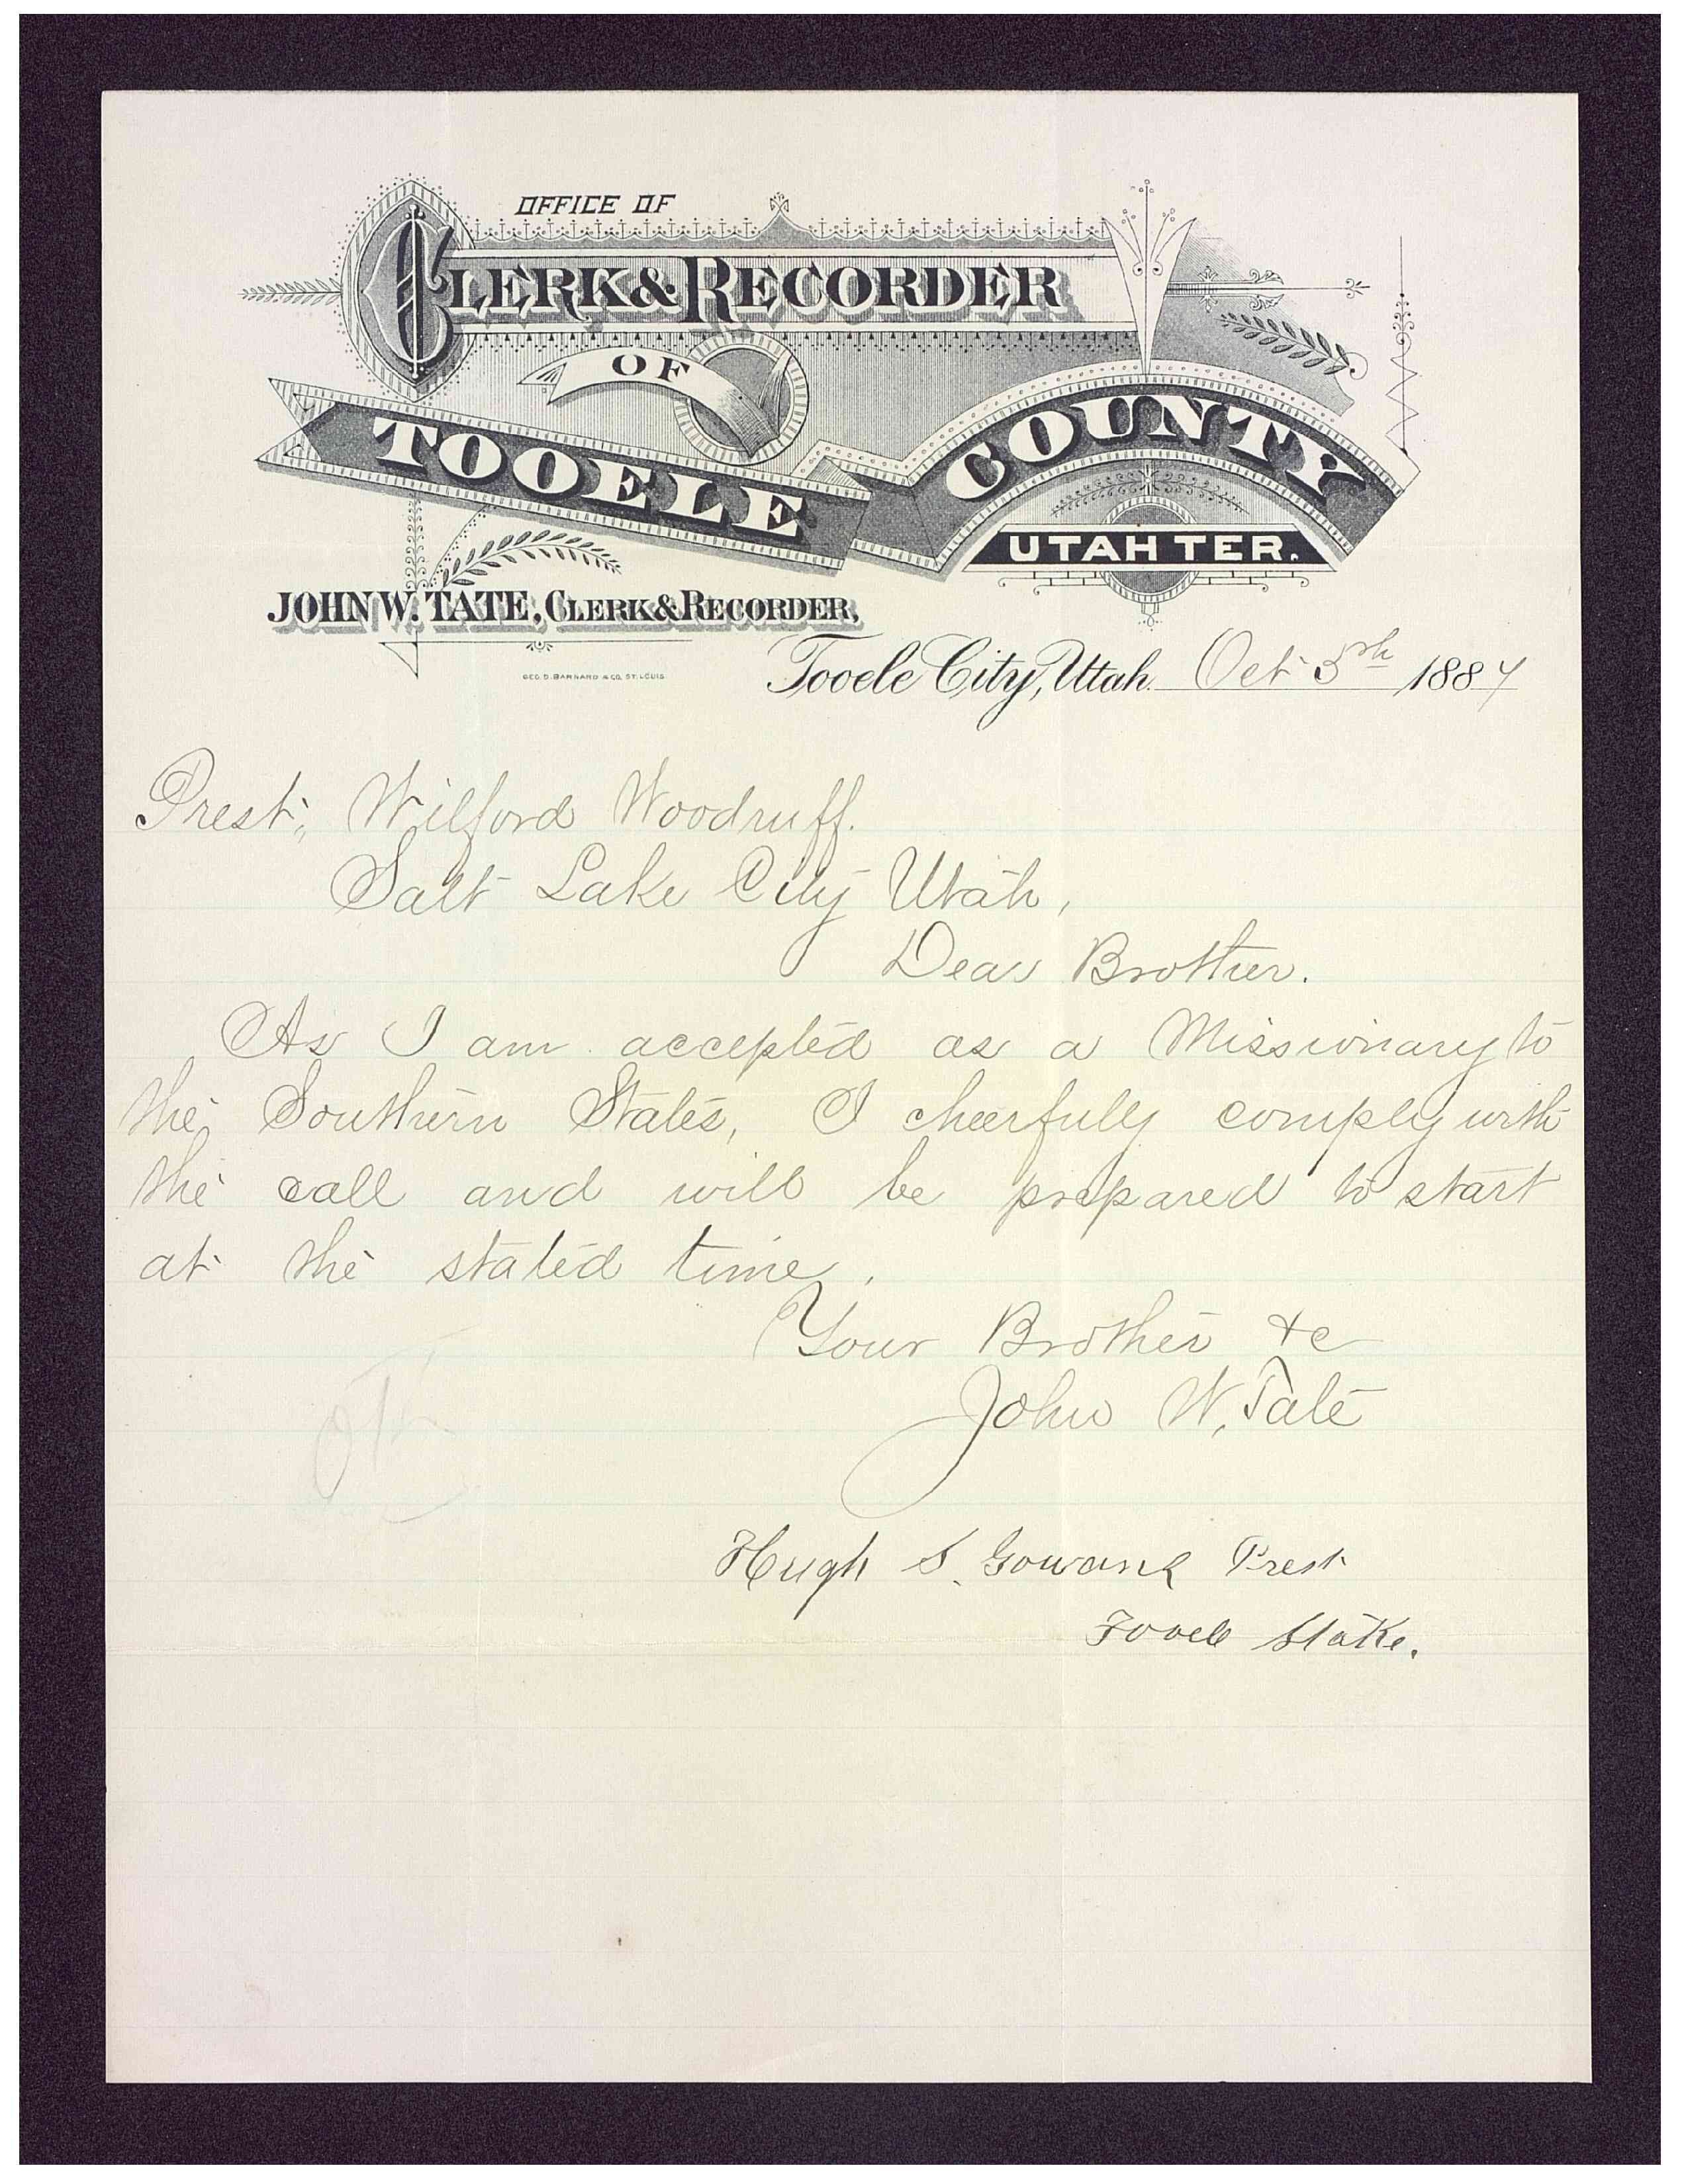 OFFICE OF
CLERK & RECORDER
OF
TOOELE COUNTY
UTAH TER.
JOHN W. TATE, CLERK & RECORDER,
GEO. D. BARNARD & CO. ST. LOUIS.
Tooele City, Utah. Oct 5th 1887
Prest; Wilford Woodruff.
Salt Lake City Utah,
Dear Brother.
As I am accepted as a Missionary to
the Southern States, I cheerfully comply with
the call and will be prepared to start
at the stated time.
Your Brother &c
John W. Tate
Hugh S. Gowans Prest
Tooele Stake.